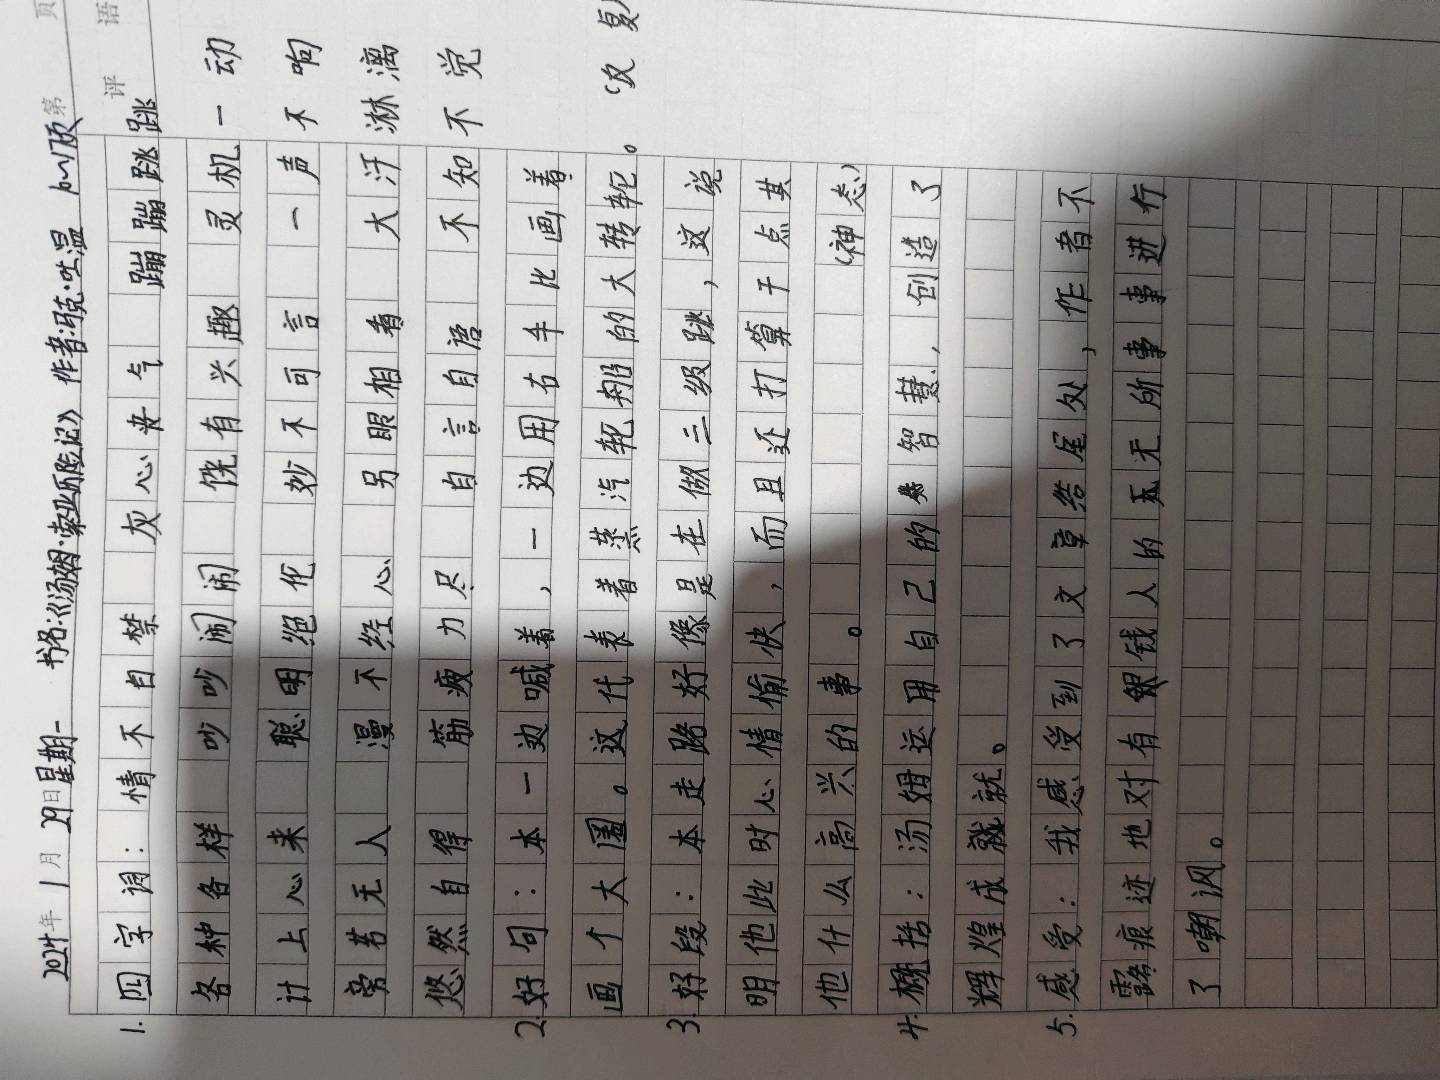 2024年 1月 29日 星期一 书名:《汤姆·索亚历险记》 作者:马克·吐温 第 页
评语
1. 四字词: 情不自禁 灰心丧气 蹦蹦跳跳
各种各样 吵吵闹闹 饶有兴趣 灵机一动
计上心来 聪明绝伦 妙不可言 一声不响
旁若无人 漫不经心 另眼相看 大汗淋漓
悠然自得 筋疲力尽 自言自语 不知不觉
2. 好句: 本一边喊着,一边用右手比画着
画个大圈。这代表着蒸汽轮船的大转轮。
3. 好段: 本走路好像是在做三级跳,这说
明他此时心情愉快,而且还打算干点其
他什么高兴的事。 (神态)
4. 概括: 汤姆运用自己的智慧,创造了
辉煌成就。
5. 感受: 我感受到了文章结尾处,作者不
露痕迹地对有钱人的无所事事进行
了嘲讽。